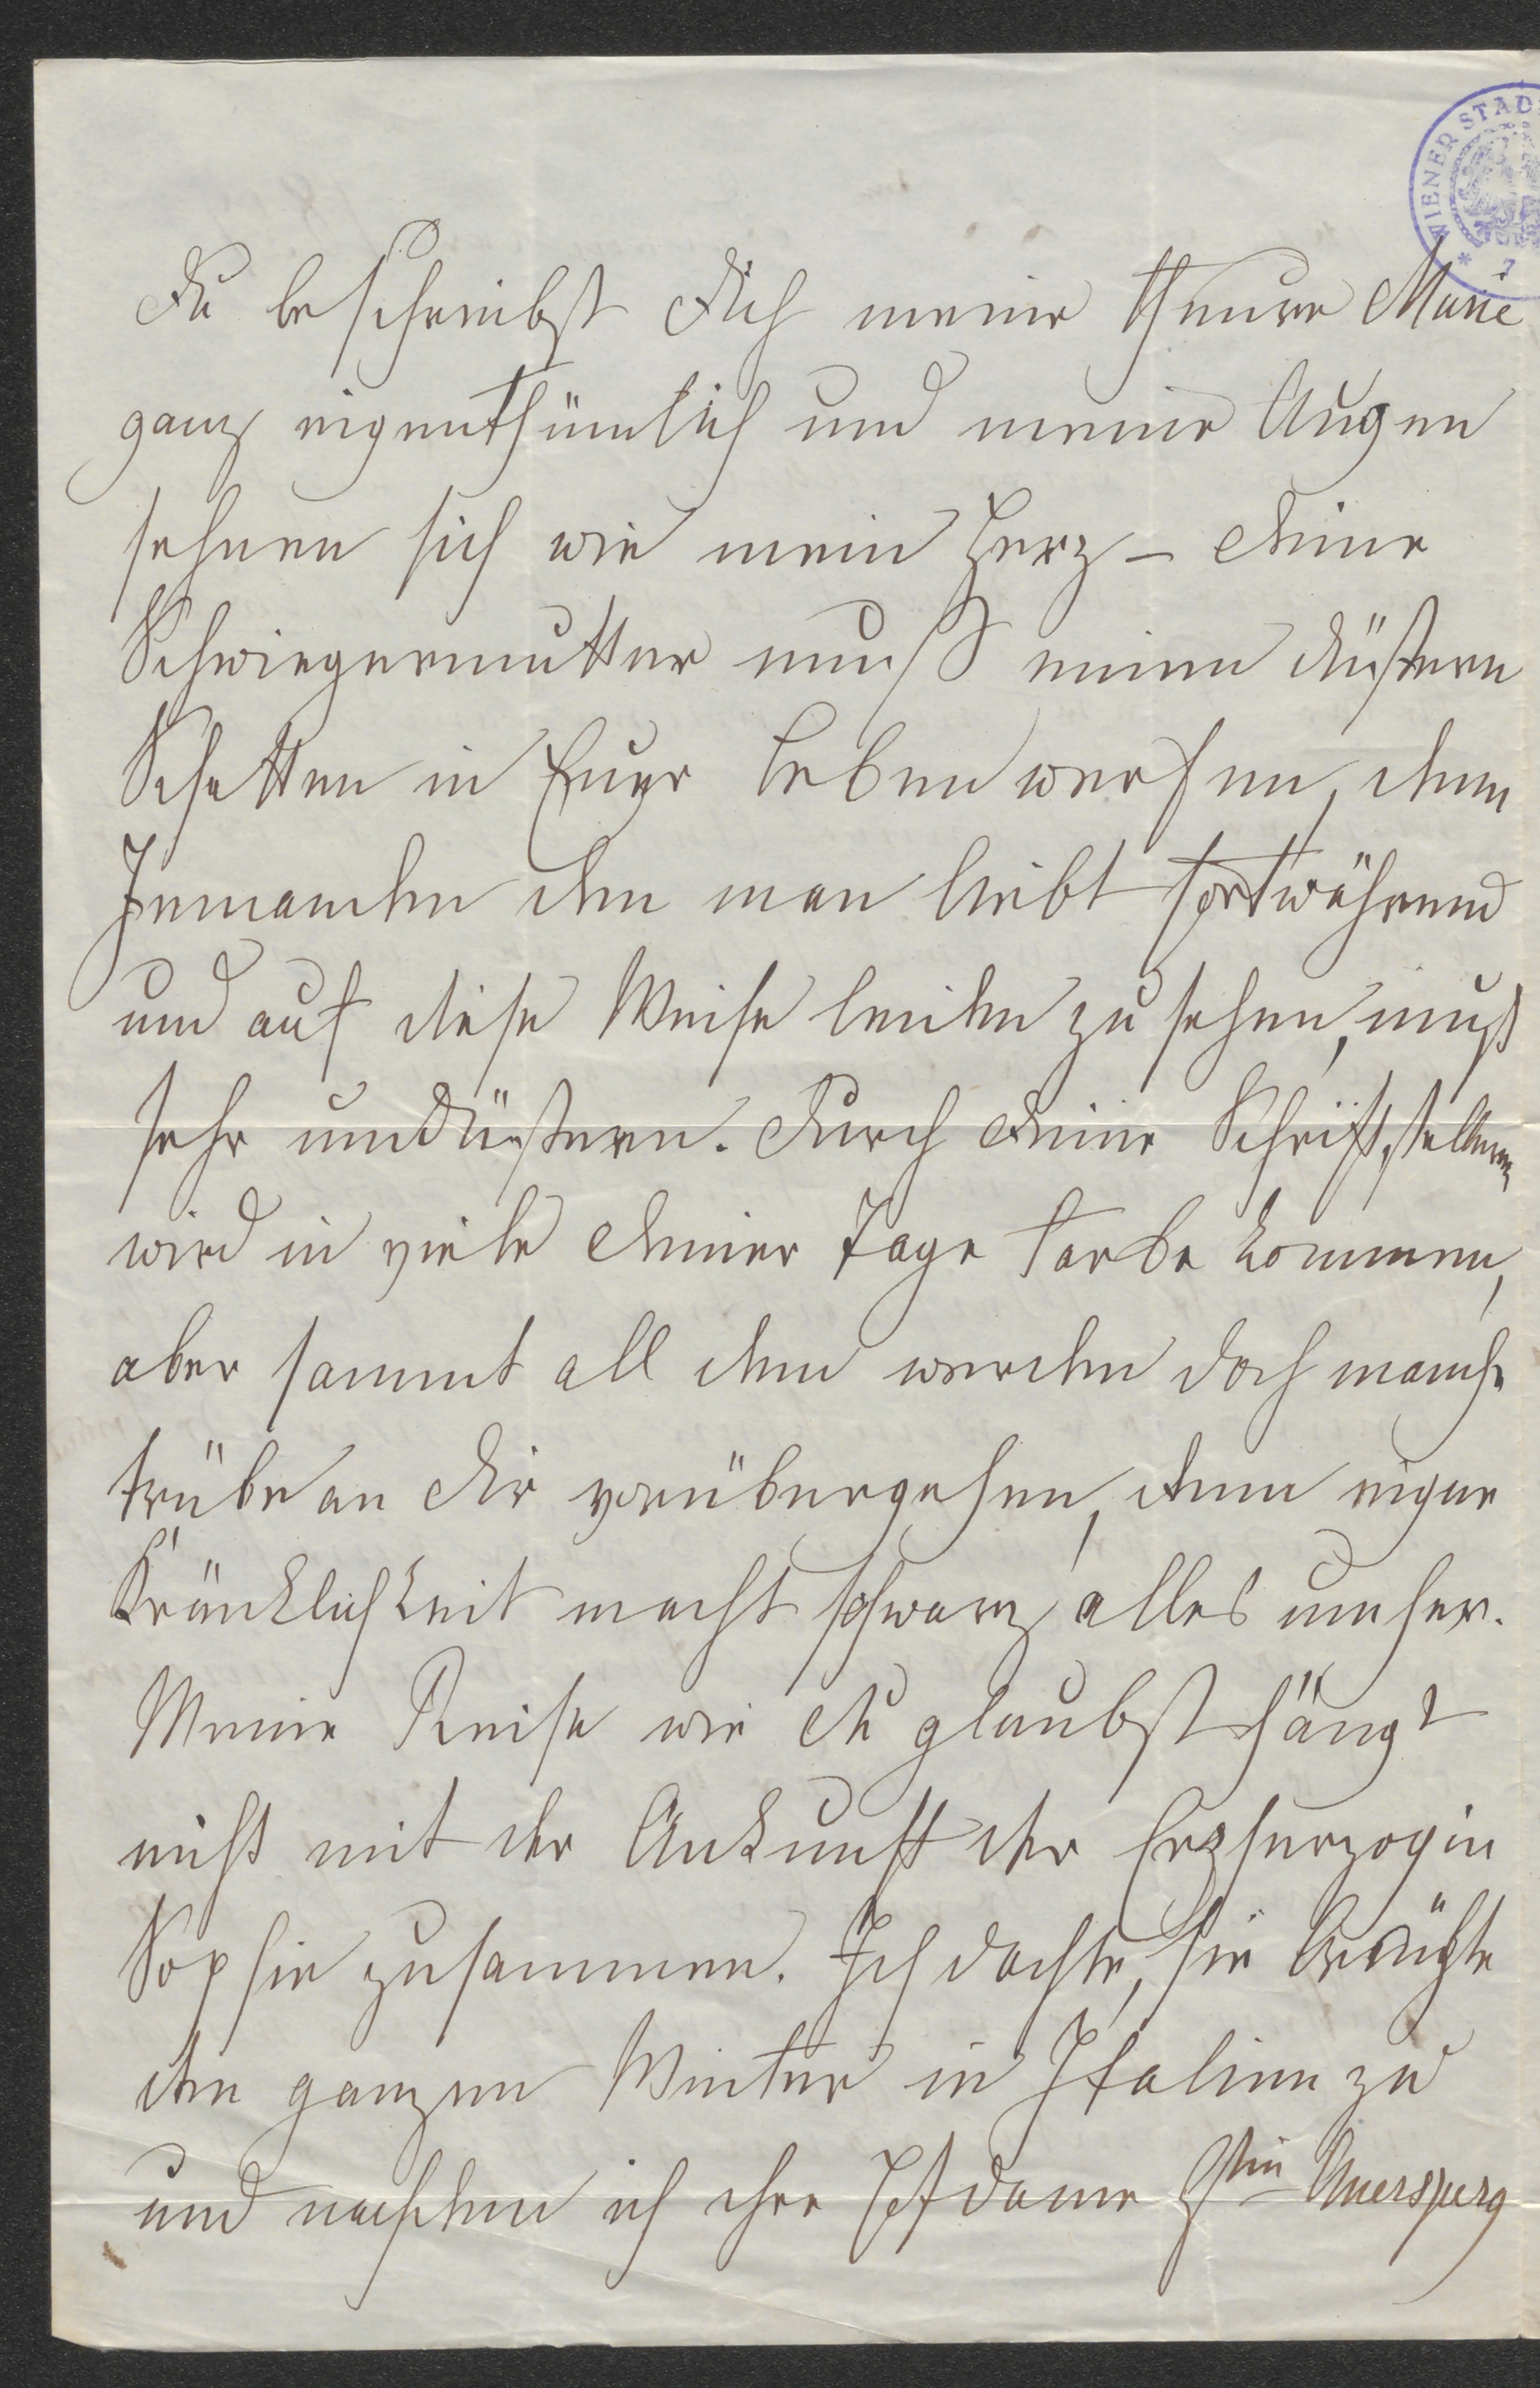 WIENER STAD
* 7
Du beschreibst Dich meine theure Marie
ganz eigenthümlich und meine Augen
sehnen sich wie mein Herz – Deine
Schwiegermutter muß einen düstern
Schatten in Euer Leben werfen, denn
Jemanden den man liebt fortwährend
und auf diese Weise leiden zu sehen, muß
sehr umdüstern. Durch Deine Schriftstellerei
wird in viele Deiner Tage Farbe kommen,
aber sammt all dem werden doch manche
trübe an Dir vorübergehen, denn eigene
Kränklichkeit macht schwarz alles umher.
Meine Reise wie Du glaubst hängt
nicht mit der Ankunft der Erzherzogin
Sophie zusammen. Ich dachte, sie brächte
den ganzen Winter in Italien zu
und nachdem ich ihre Hofdame Gfin Auersperg